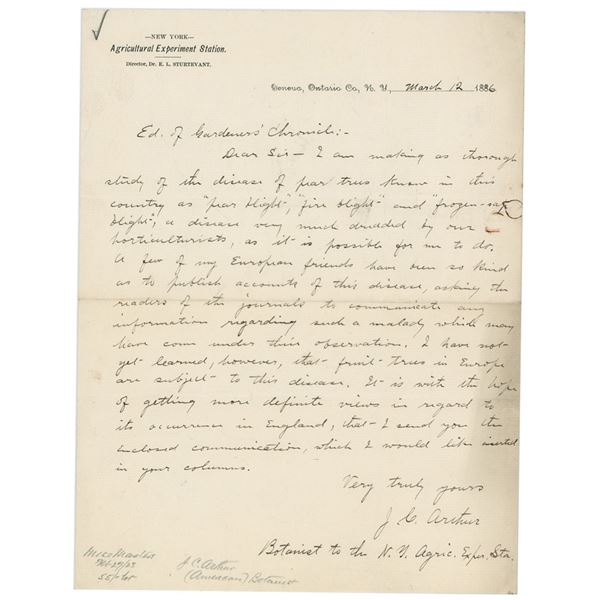 —NEW YORK—
Agricultural Experiment Station.
Director, Dr. E. L. STURTEVANT.
Geneva, Ontario Co., N. Y., March 12 1886
Ed. of Gardeners' Chronicle:-
Dear Sir — I am making as thorough
study of the disease of pear trees known in this
country as "pear blight", "fire blight" and "frozen-sap
blight", a disease very much dreaded by our
horticulturists, as it is possible for me to do.
A few of my European friends have been so kind
as to publish accounts of this disease, asking the
readers of the journals to communicate any
information regarding such a malady which may
have come under their observation. I have not
yet learned, however, that fruit trees in Europe
are subject to this disease. It is with the hope
of getting more definite views in regard to
its occurrence in England, that I send you the
enclosed communication, which I would like inserted
in your columns.
Very truly yours
J. C. Arthur
Botanist to the N. Y. Agric. Exper. Sta.
J C Arthur
(American) Botanist